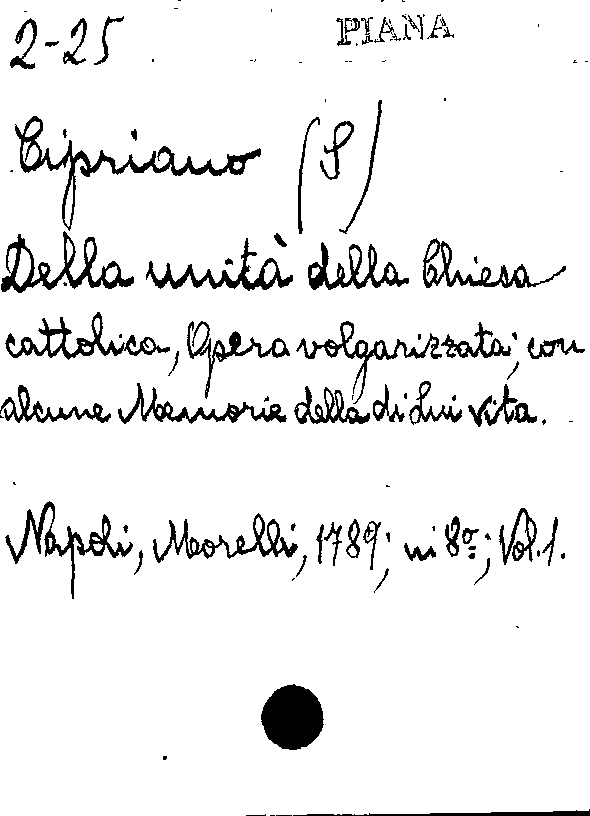 2-25 PIANA
Cipriano (S)
Della unità della Chiesa
cattolica, Opera volgarizzata; con
alcune Memorie della di Lui vita.
Napoli, Morelli, 1789; in 8º; Vol. 1.